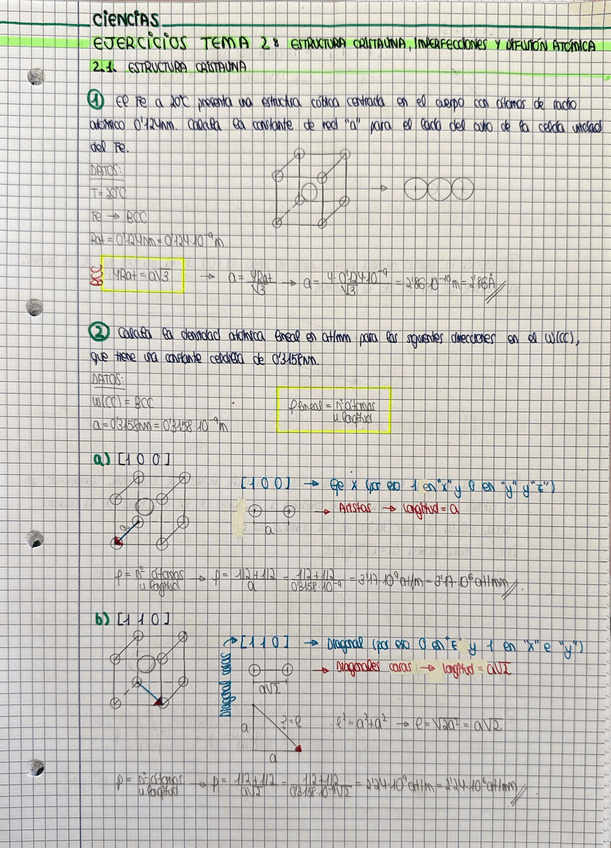 CIENCIAS
EJERCICIOS TEMA 2: ESTRUCTURA CRISTALINA, IMPERFECCIONES Y DIFUSIÓN ATÓMICA
2.1. ESTRUCTURA CRISTALINA
① El Fe a 20ºC presenta una estructura cúbica centrada en el cuerpo con átomos de radio
atómico 0'124nm. Calcula la constante de red "a" para el lado del cubo de la celda unidad
del Fe.
DATOS:
T = 20ºC
Fe → BCC
Rat = 0'124nm = 0'124·10⁻⁹m
BCC 4Rat = a√3 → a = 4Rat/√3 → a = 4·0'124·10⁻⁹/√3 = 2'86·10⁻¹⁰m = 2'86Å
② Calcula la densidad atómica lineal en at/mm para las siguientes direcciones en el W(CC),
que tiene una constante celdilla de 0'3158nm.
DATOS:
W(CC) = BCC
a = 0'3158nm = 0'3158·10⁻⁹m
ρlineal = nº átomos/u. longitud
a) [1 0 0]
[1 0 0] → Eje X (por eso 1 en "x" y 0 en "y" y "z")
→ Aristas → longitud = a
a
a
ρ = nº átomos/u. longitud → ρ = 1/2+1/2/a = 1/2+1/2/0'3158·10⁻⁹ = 3'17·10⁹ at/m = 3'17·10⁶ at/mm
b) [1 1 0]
Diagonal caras
→ [1 1 0] → Diagonal (por eso 0 en "z" y 1 en "x" e "y")
→ Diagonales caras → longitud = a√2
a√2
a
a
¿? = l
l² = a² + a² → l = √2a² = a√2
ρ = nº átomos/u. longitud → ρ = 1/2+1/2/a√2 = 1/2+1/2/0'3158·10⁻⁹√2 = 2'24·10⁹ at/m = 2'24·10⁶ at/mm